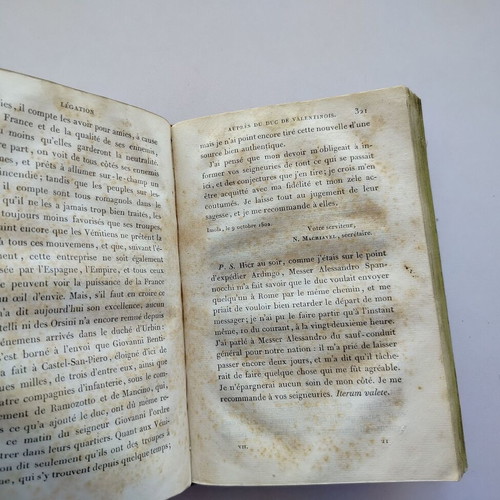 LÉGATION
ies, il compte les avoir pour amies, à cause
France et de la qualité de ses ennemis,
u moins qu'elles garderont la neutralité.
tre part, on voit de tous côtés ses ennemis
prêts à allumer sur-le-champ un
incendie; tandis que les peuples sur
il compte sont tous romagnols dans le
qu'il ne les a jamais trop bien traités, les
toujours moins favorisés que ses troupes.
core que les Vénitiens ne prêtent
à tous ces mouvemens, et que, suivant l'é-
cette entreprise ne soit également
par l'Espagne, l'Empire, et tous
peuvent voir la puissance de la France
un œil d'envie. Mais, s'il faut en croire ce
m'a dit aujourd'hui son excellence,
telli ni des Orsini n'a encore remué depuis
énemens arrivés dans le duché d'Urbin:
s'est borné à l'envoi que Giovanni Benti-
fait à Castel-San-Piero, éloigné d'ici de
ques milles, de trois d'entre eux, ainsi que
autre compagnies d'infanterie, sous le com-
ement de Ramozotto et de Mancino, qui,
ce qu'ajouta le duc, ont dû même re-
ce matin du seigneur Giovanni l'ordre
trer dans leurs quartiers. Quant aux Véni-
on dit seulement qu'ils ont des troupes à
qui s'y trouvent depuis quelque temps;
AUPRÈS DU DUC DE VALENTINOIS. 321
mais je n'ai point encore tiré cette nouvelle d'une
source bien authentique.
J'ai pensé que mon devoir m'obligeait à in-
former vos seigneuries de tout ce qui se passait
ici, et des conjectures que j'en tire; je crois m'en
être acquitté avec ma fidélité et mon zèle ac-
coutumés. Je laisse tout au jugement de leur
sagesse, et je me recommande à elles.
Imola, le 9 octobre 1502.
Votre serviteur,
N. MACHIAVEL, secrétaire.
P. S. Hier au soir, comme j'étais sur le point
d'expédier Ardingo, Messer Alessandro Span-
nocchi m'a fait savoir que le duc voulait envoyer
quelqu'un à Rome par le même chemin, et me
priait de vouloir bien retarder le départ de mon
messager; je n'ai pu le faire partir qu'à l'instant
même, 10 du courant, à la vingt-deuxième heure.
J'ai parlé à Messer Alessandro du sauf-conduit
général pour notre nation: il m'a prié de laisser
passer encore deux jours, et m'a dit qu'il tâche-
rait de faire quelque chose qui me fût agréable.
Je n'épargnerai aucun soin de mon côté. Je me
recommande à vos seigneuries. Iterum valete.
VII. 21